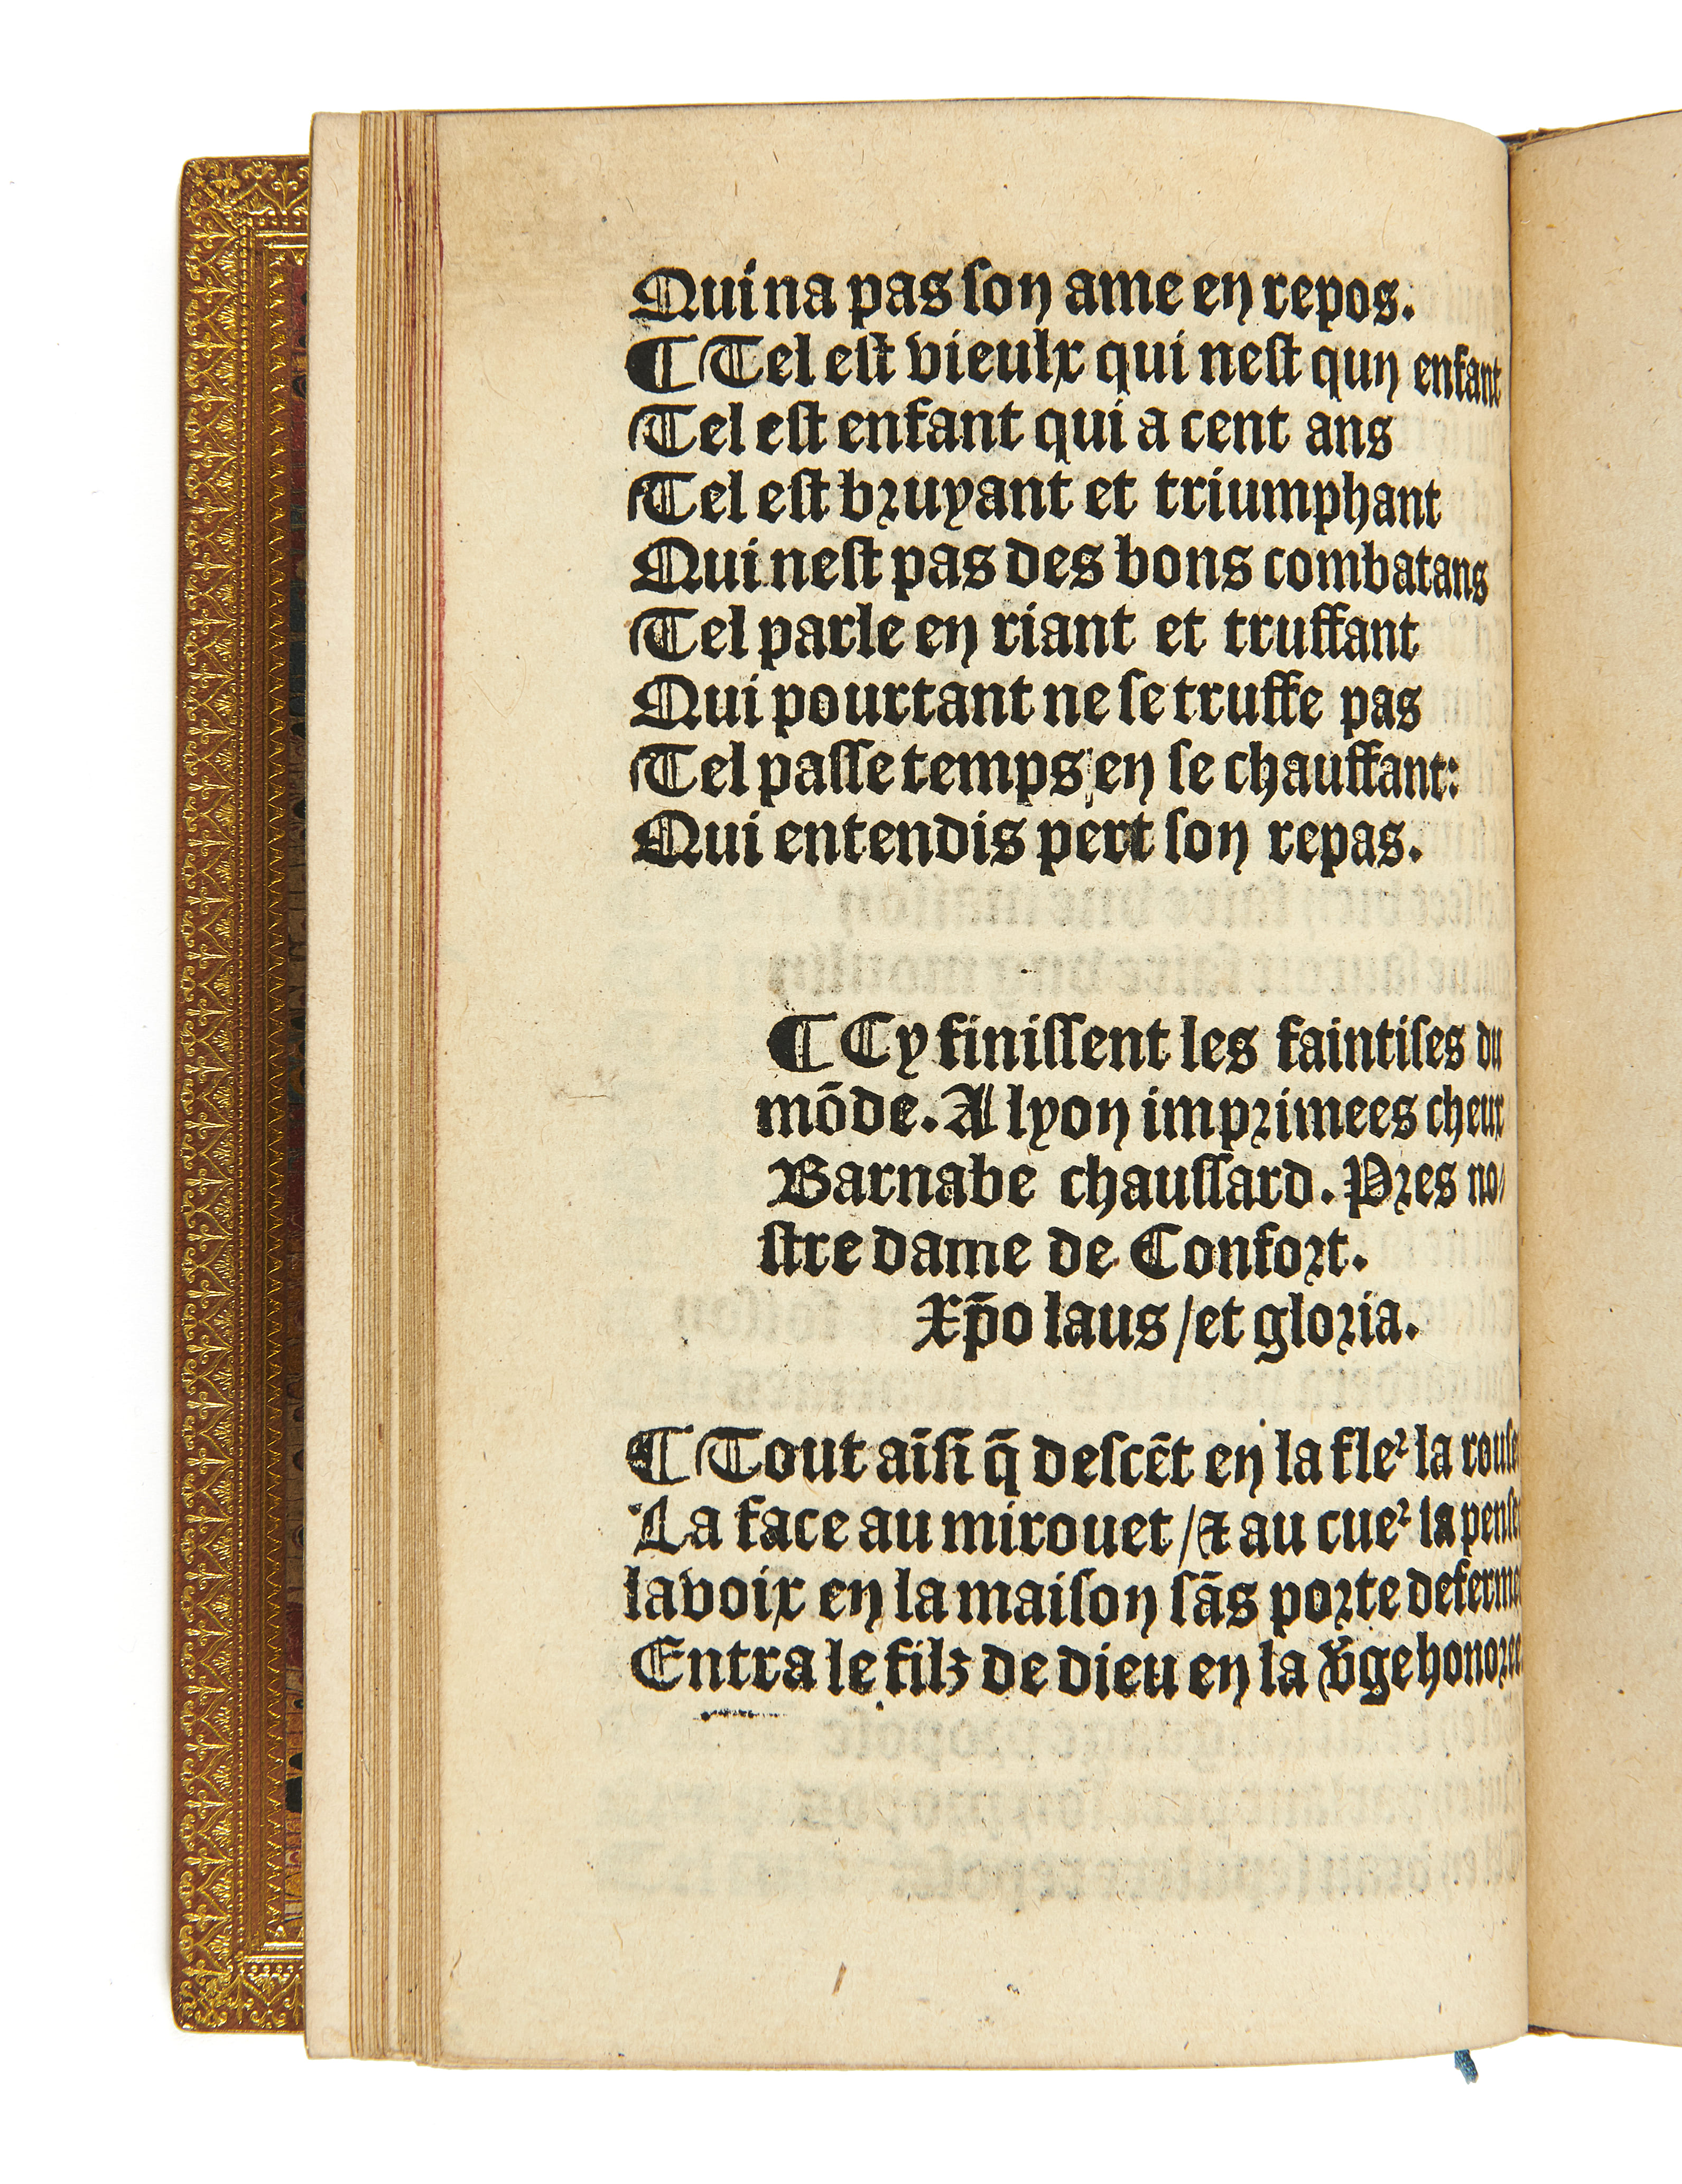 Qui na pas ſon ame en repos.
¶ Tel eſt vieulx qui neſt qun enfant
Tel eſt enfant qui a cent ans
Tel eſt bruyant et triumphant
Qui neſt pas des bons combatans
Tel parle en riant et truffant
Qui pourtant ne ſe truffe pas
Tel paſſe temps en ſe chauffant:
Qui entendis pert ſon repas.
¶ Cy finiſſent les faintiſes du
mōde. A lyon imprimees cheux
Barnabe chauſſard. Pres no⸗
ſtre dame de Confort.
Xp̄o laus / et gloria.
¶ Tout aīſi q̄ deſcēt en la fleꝛ la rouſe
La face au mirouet / ⁊ au cueꝛ la penſe
la voix en la maiſon ſās porte deferme
Entra le filz de dieu en la v̄ge honoree